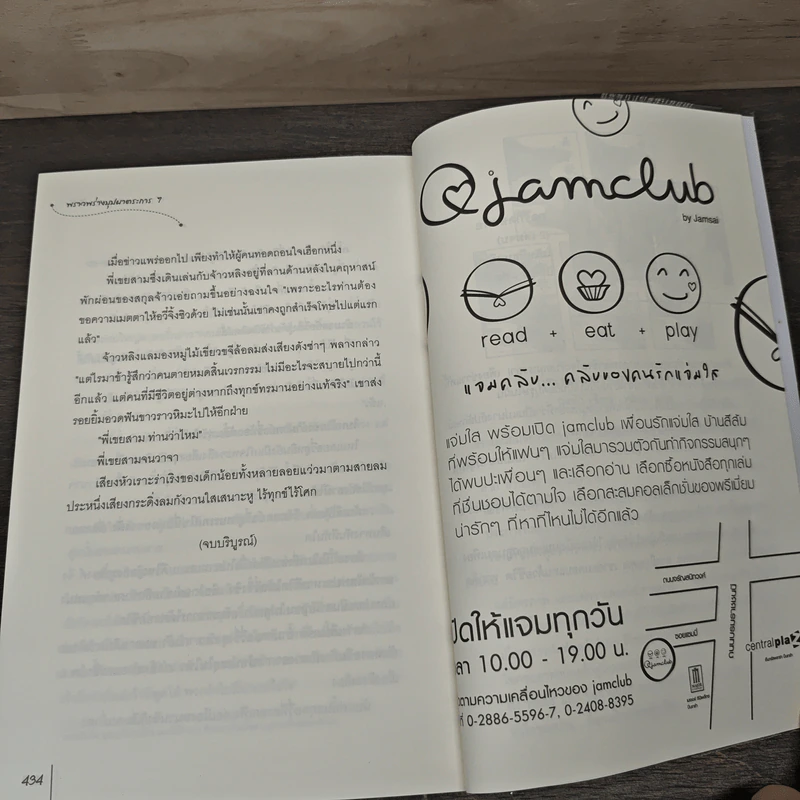 พราวพร่างบุปผาตระการ 7
เมื่อข่าวแพร่ออกไป เพียงทำให้ผู้คนทอดถอนใจเฮือกหนึ่ง
พี่เขยสามซึ่งเดินเล่นกับจ้าวหลิงอยู่ที่ลานด้านหลังในคฤหาสน์
พักผ่อนของสกุลจ้าวเอ่ยถามขึ้นอย่างฉงนใจ "เพราะอะไรท่านต้อง
ขอความเมตตาให้อวี๋จิ้งซิวด้วย ไม่เช่นนั้นเขาคงถูกสำเร็จโทษไปแต่แรก
แล้ว"
จ้าวหลิงแลมองหมู่ไม้เขียวขจีล้อลมส่งเสียงดังซ่าๆ พลางกล่าว
"แต่ไรมาข้ารู้สึกว่าคนตายหมดสิ้นเวรกรรม ไม่มีอะไรจะสบายไปกว่านี้
อีกแล้ว แต่คนที่มีชีวิตอยู่ต่างหากถึงทุกข์ทรมานอย่างแท้จริง" เขาส่ง
รอยยิ้มอวดฟันขาวราวหิมะไปให้อีกฝ่าย
"พี่เขยสาม ท่านว่าไหม"
พี่เขยสามจนวาจา
เสียงหัวเราะร่าเริงของเด็กน้อยทั้งหลายลอยแว่วมาตามสายลม
ประหนึ่งเสียงกระดิ่งลมกังวานใสเสนาะหู ไร้ทุกข์ไร้โศก
(จบบริบูรณ์)
434
@jamclub
by Jamsai
read + eat + play
แจมคลับ... คลับของคนรักแจ่มใส
แจ่มใส พร้อมเปิด jamclub เพื่อนรักแจ่มใส บ้านสีส้ม
ที่พร้อมให้แฟนๆ แจ่มใสมารวมตัวกันทำกิจกรรมสนุกๆ
ได้พบปะเพื่อนๆ และเลือกอ่าน เลือกซื้อหนังสือทุกเล่ม
ที่ชื่นชอบได้ตามใจ เลือกสะสมคอลเล็กชั่นของพรีเมี่ยม
น่ารักๆ ที่หาที่ไหนไม่ได้อีกแล้ว
ปิดให้แจมทุกวัน
ลา 10.00 - 19.00 น.
ตามความเคลื่อนไหวของ jamclub
ที่ 0-2886-5596-7, 0-2408-8395
ถนนจรัญสนิทวงศ์
ซอยแฮปปี้
@jamclub
ถนนบรมราชชนนี
centralplaz